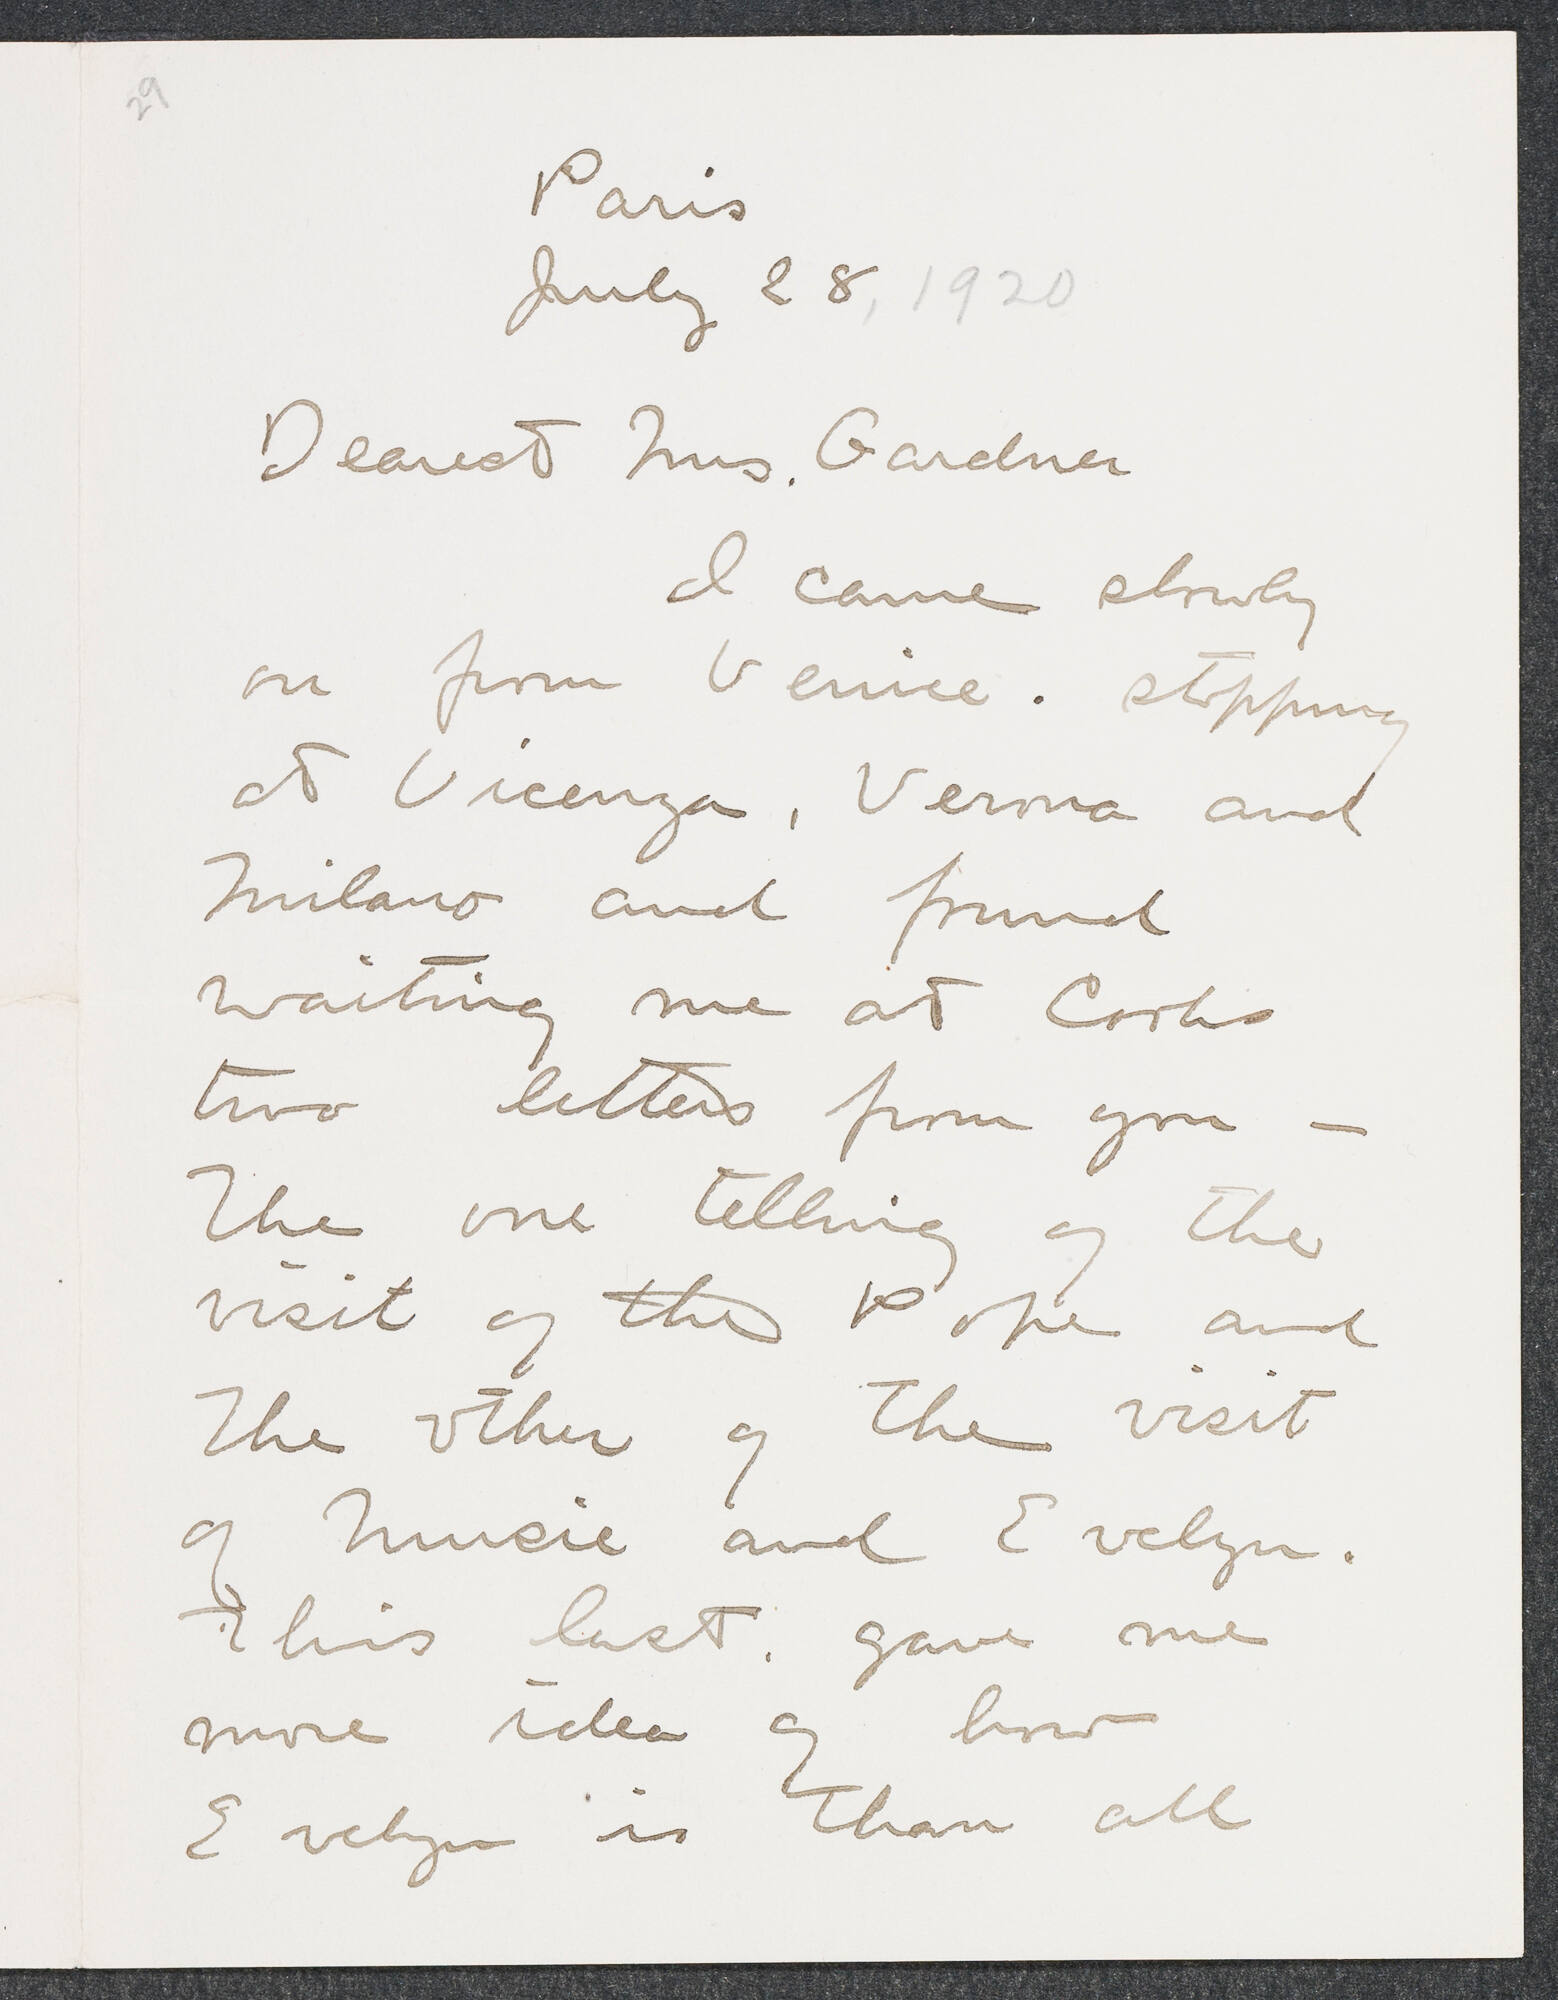 29
Paris
July 28, 1920
Dearest Mrs. Gardner
I came slowly
on from Venice. stopping
at Vicenza, Verona and
Milano and found
waiting me at Cooks
two letters from you –
The one telling of the
visit of ~~the~~ Pope and
the other of the visit
of Music and Evelyn.
This last, gave me
more idea of how
Evelyn is than all